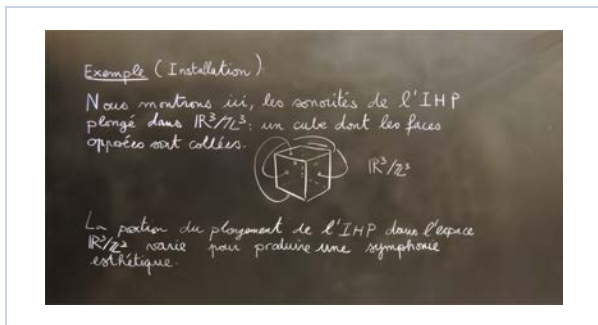 Exemple (Installation):
Nous montrons ici, les sonorités de l'IHP
plongé dans ℝ³/ℤ³: un cube dont les faces
opposées sont collées.
ℝ³/ℤ³
La portion du plongement de l'IHP dans l'espace
ℝ³/ℤ³ varie pour produire une symphonie
esthétique.